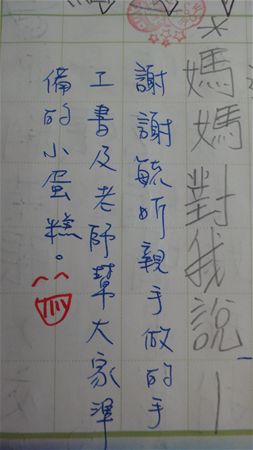 *媽媽對我說—
謝謝毓昕親手做的手
工書及老師幫大家準
備的小蛋糕。